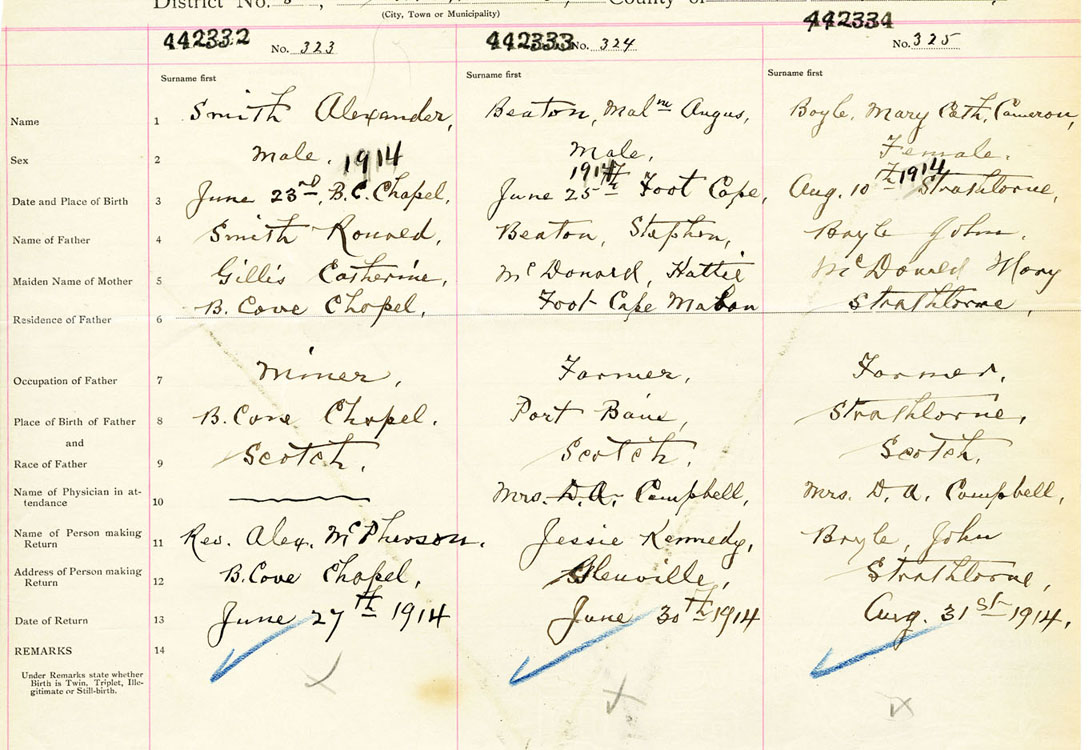 District No. , County of
(City, Town or Municipality)
442332 No. 323 442333 No. 324 442334 No. 325
Surname first Surname first Surname first
Name 1 Smith Alexander, Beaton, Mal<sup>m</sup> Angus, Boyle, Mary Cath. Cameron,
Sex 2 Male. Male. Female.
1914 1914 1914
Date and Place of Birth 3 June 23rd, B.C. Chapel, June 25th Foot Cape, Aug. 10th Strathlorne,
Name of Father 4 Smith Ronald, Beaton, Stephen, Boyle John.
Maiden Name of Mother 5 Gillis Catherine, McDonald, Hattie McDonald Mary
Residence of Father 6 B. Cove Chapel, Foot Cape Mabou Strathlorne,
Occupation of Father 7 Miner, Farmer, Farmer,
Place of Birth of Father 8 B. Cove Chapel. Port Strathlorne,
and
Race of Father 9 Scotch. Scotch. Scotch.
Name of Physician in at-
tendance 10 Mrs. D.A. Campbell, Mrs. D. A. Campbell,
Name of Person making
Return 11 Rev. Alex. McPherson. Jessie Kennedy, Boyle, John
Address of Person making
Return 12 B. Cove Chapel, Glenville, Strathlorne,
Date of Return 13 June 27th 1914 June 30th 1914 Aug. 31st 1914.
REMARKS 14
Under Remarks state whether
Birth is Twin, Triplet, Ille-
gitimate or Still-birth.